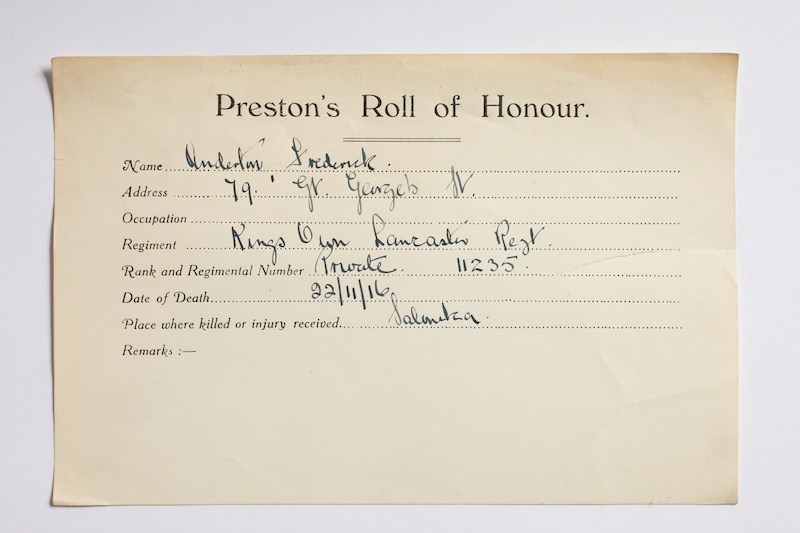 Preston's Roll of Honour.
Name Anderton Frederick.
Address 79. Gt. George's St.
Occupation
Regiment Kings Own Lancaster Regt.
Rank and Regimental Number Private. 11235.
Date of Death 22/11/16
Place where killed or injury received Salonika.
Remarks :—